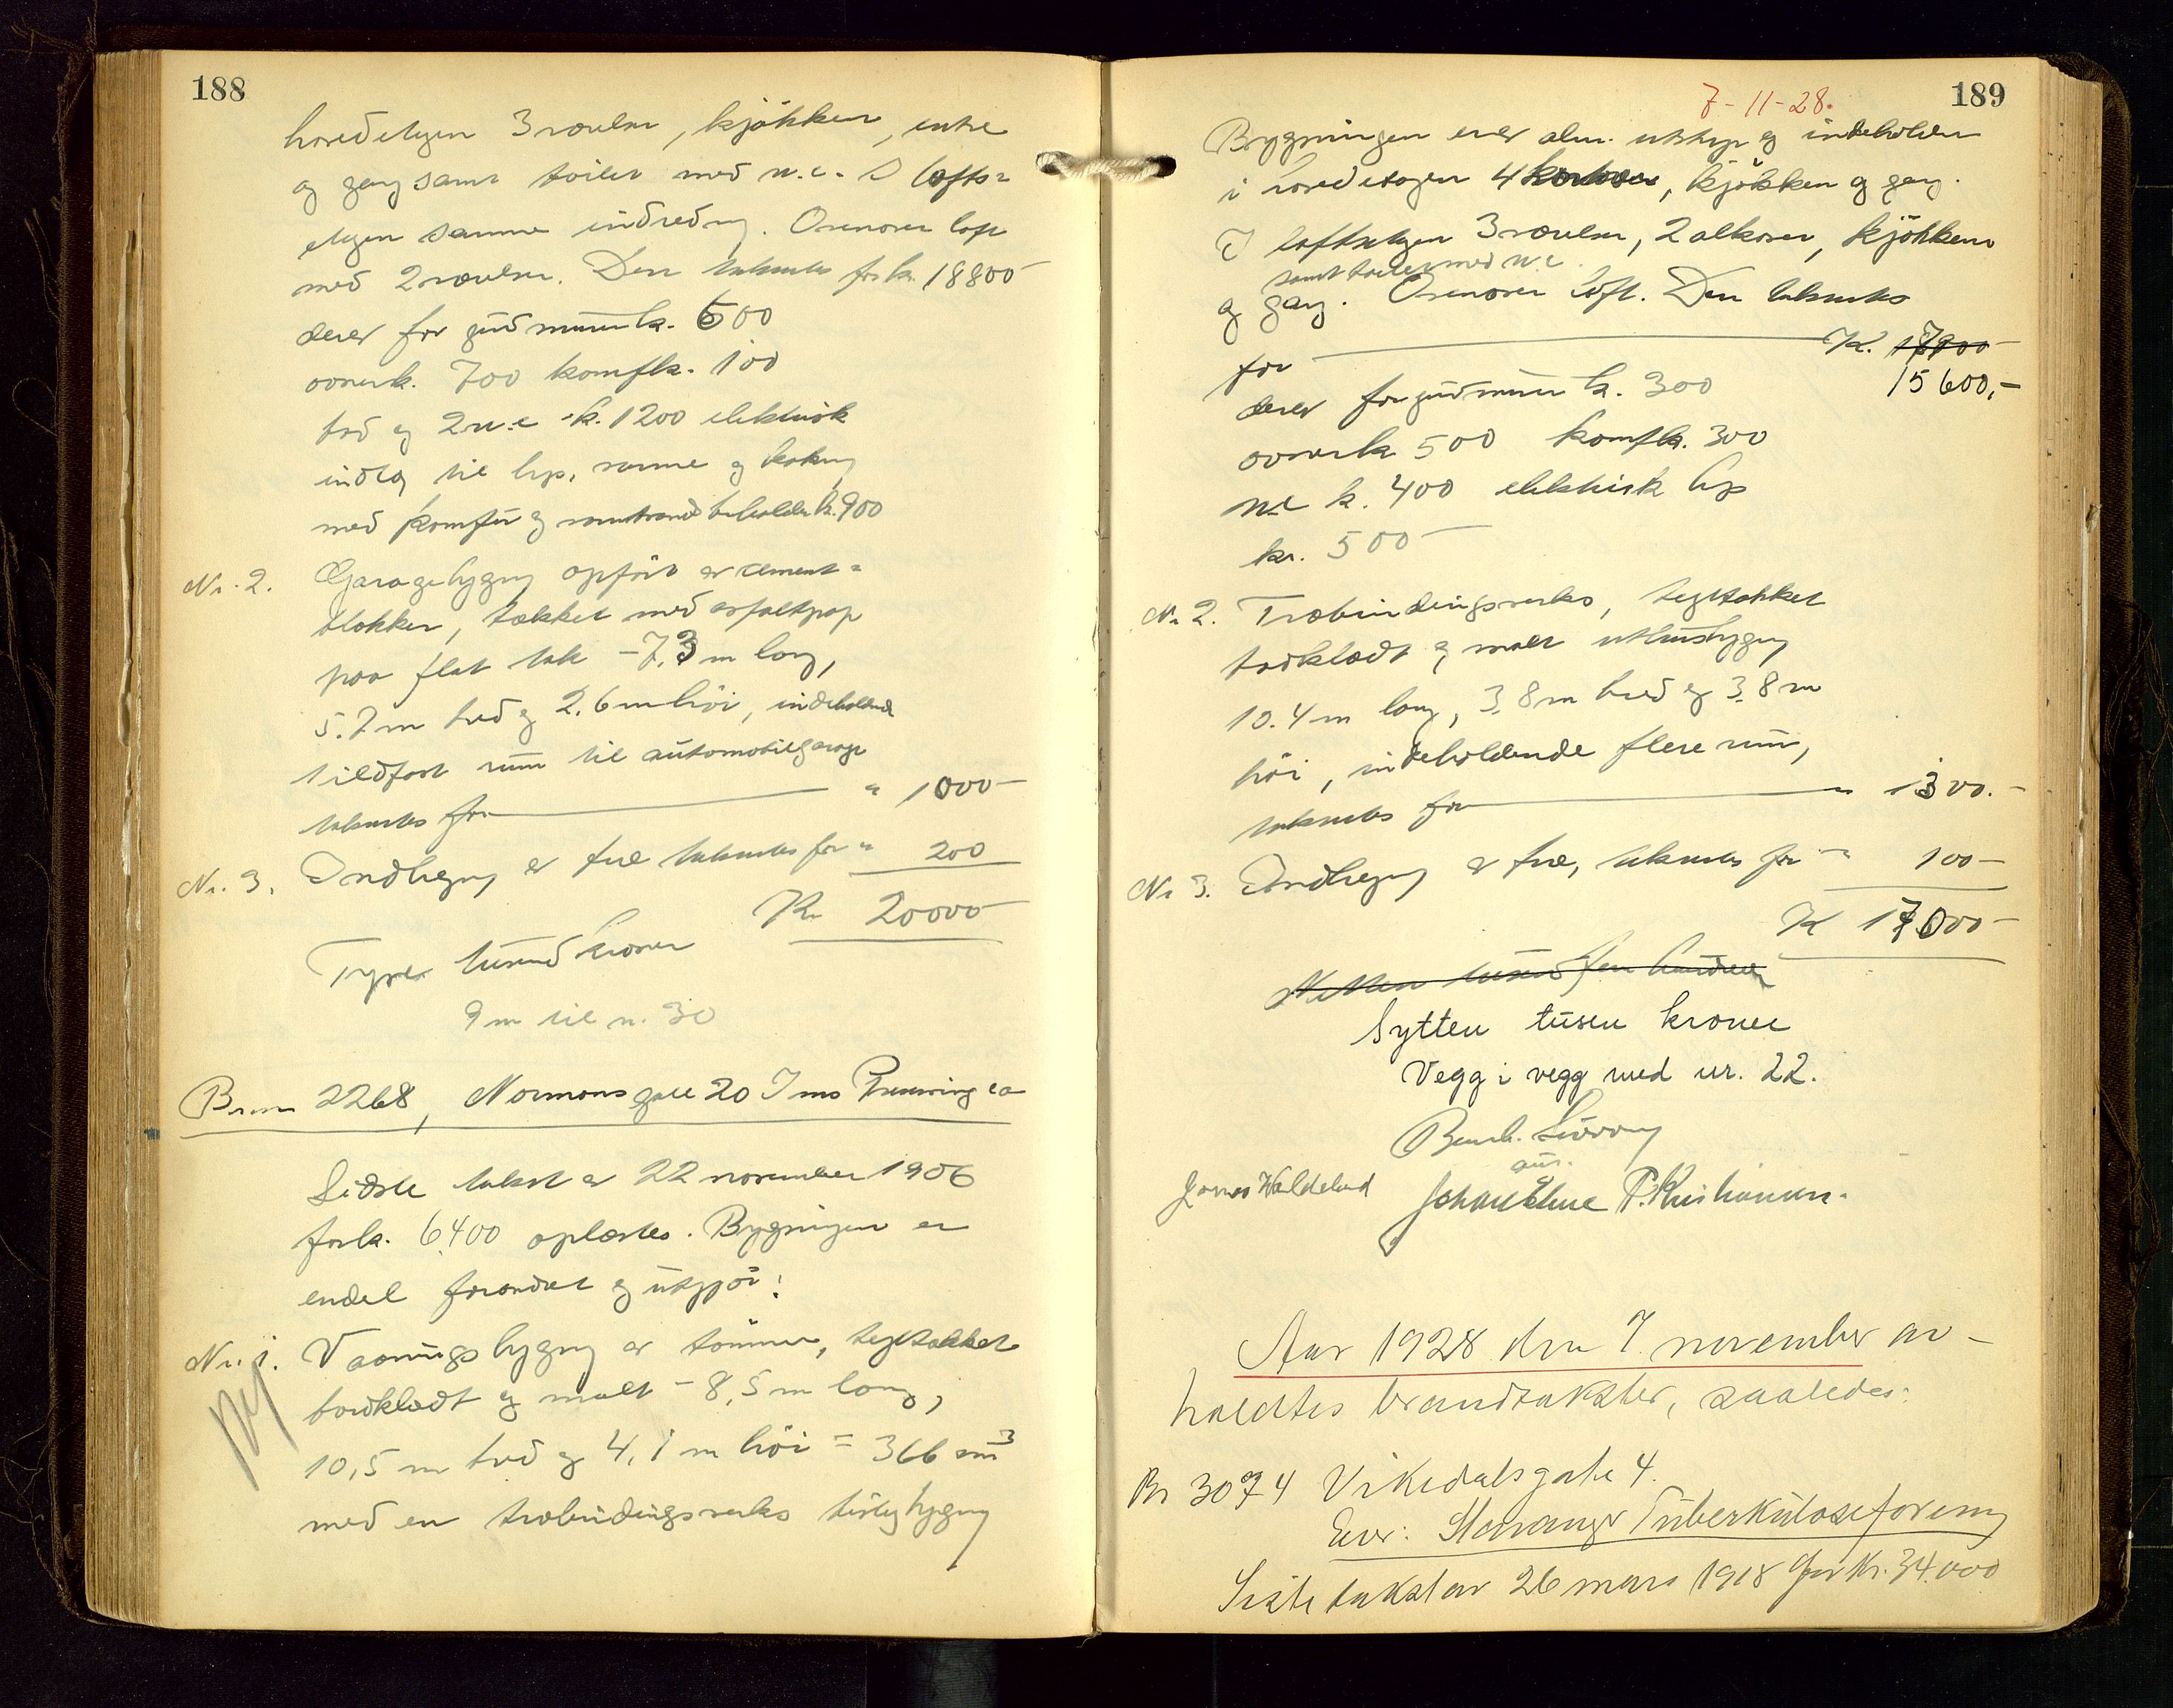 188
hovedetagen 3 værelser, kjøkken, entre
og gang samt toilet med w.c. I lofts-
etagen samme indredng. Ovenover loft
med 2 værelser. Den takseres for kr. 18800-
derav for grundmuur kr. 600
ovner k. 700 komf kr. 100
bad og 2 w.c - k. 1200 elektrisk
indlæg til lys, varme og kokning
med komfur og varmtvandbeholder k. 900
Nr. 2. Garagebygng opført av cement-
blokker, tækket med asfaltpap
paa flat tak - 7,3 m lang,
5.7 m bred og 2.6 m høi, indeholdende
1 ildfast rum til automobilgarage
takseres for " 1000-
Nr. 3. Indhegng av træ takseres for " 200
Kr 20000-
Tyve tusend kroner
9 m til n. 30
Br nr 2268, Normansgate 20 Jens
Sidste takst av 22 november 1906
for k. 6400 oplæstes. Bygningen er
endel forandret og utgjør:
Nr. 1. Vaaningsbygng av tømmer, tegltækket
bordklædt og malt - 8,5 m lang,
10,5 m bred og 4,1 m høi = 366 m³
med en træbindingsverks bislagbygng
Ny
7-11-28.
189
Bygningen er av alm. utstyr og indeholder
i hovedetagen 4 værelser, kjøkken og gang.
I loftsetagen 3 værelser, 2 alkover, kjøkken
samt toilet med w.c.
og gang. Ovenover loft. Den takseres
for K. 17900-
15600,-
derav for grundmuur k. 300
ovner k 500 komf kr. 300
wc k. 400 elektrisk lys
kr. 500-
Nr 2. Træbindingsverks, tegltækket
bordklædt og malt uthusbygng
10.4 m lang, 3.8 m bred og 3.8 m
høi, indeholdende flere rum,
takseres for " 1300.-
Nr 3. Indhegng av træ, takseres for " 100-
K 17000-
Nitten tusend fem hundrede
Sytten tusen kroner
Vegg i vegg med nr. 22.
Jonas Haldeland P. Kristiansen.
Aar 1928 den 7. november av-
holdtes brandtakster, saaledes:
Br 3074 Vikedalsgate 4.
Eier: Stavanger Tuberkuloseforening
Siste takst av 26 mars 1918 for Kr. 34.000